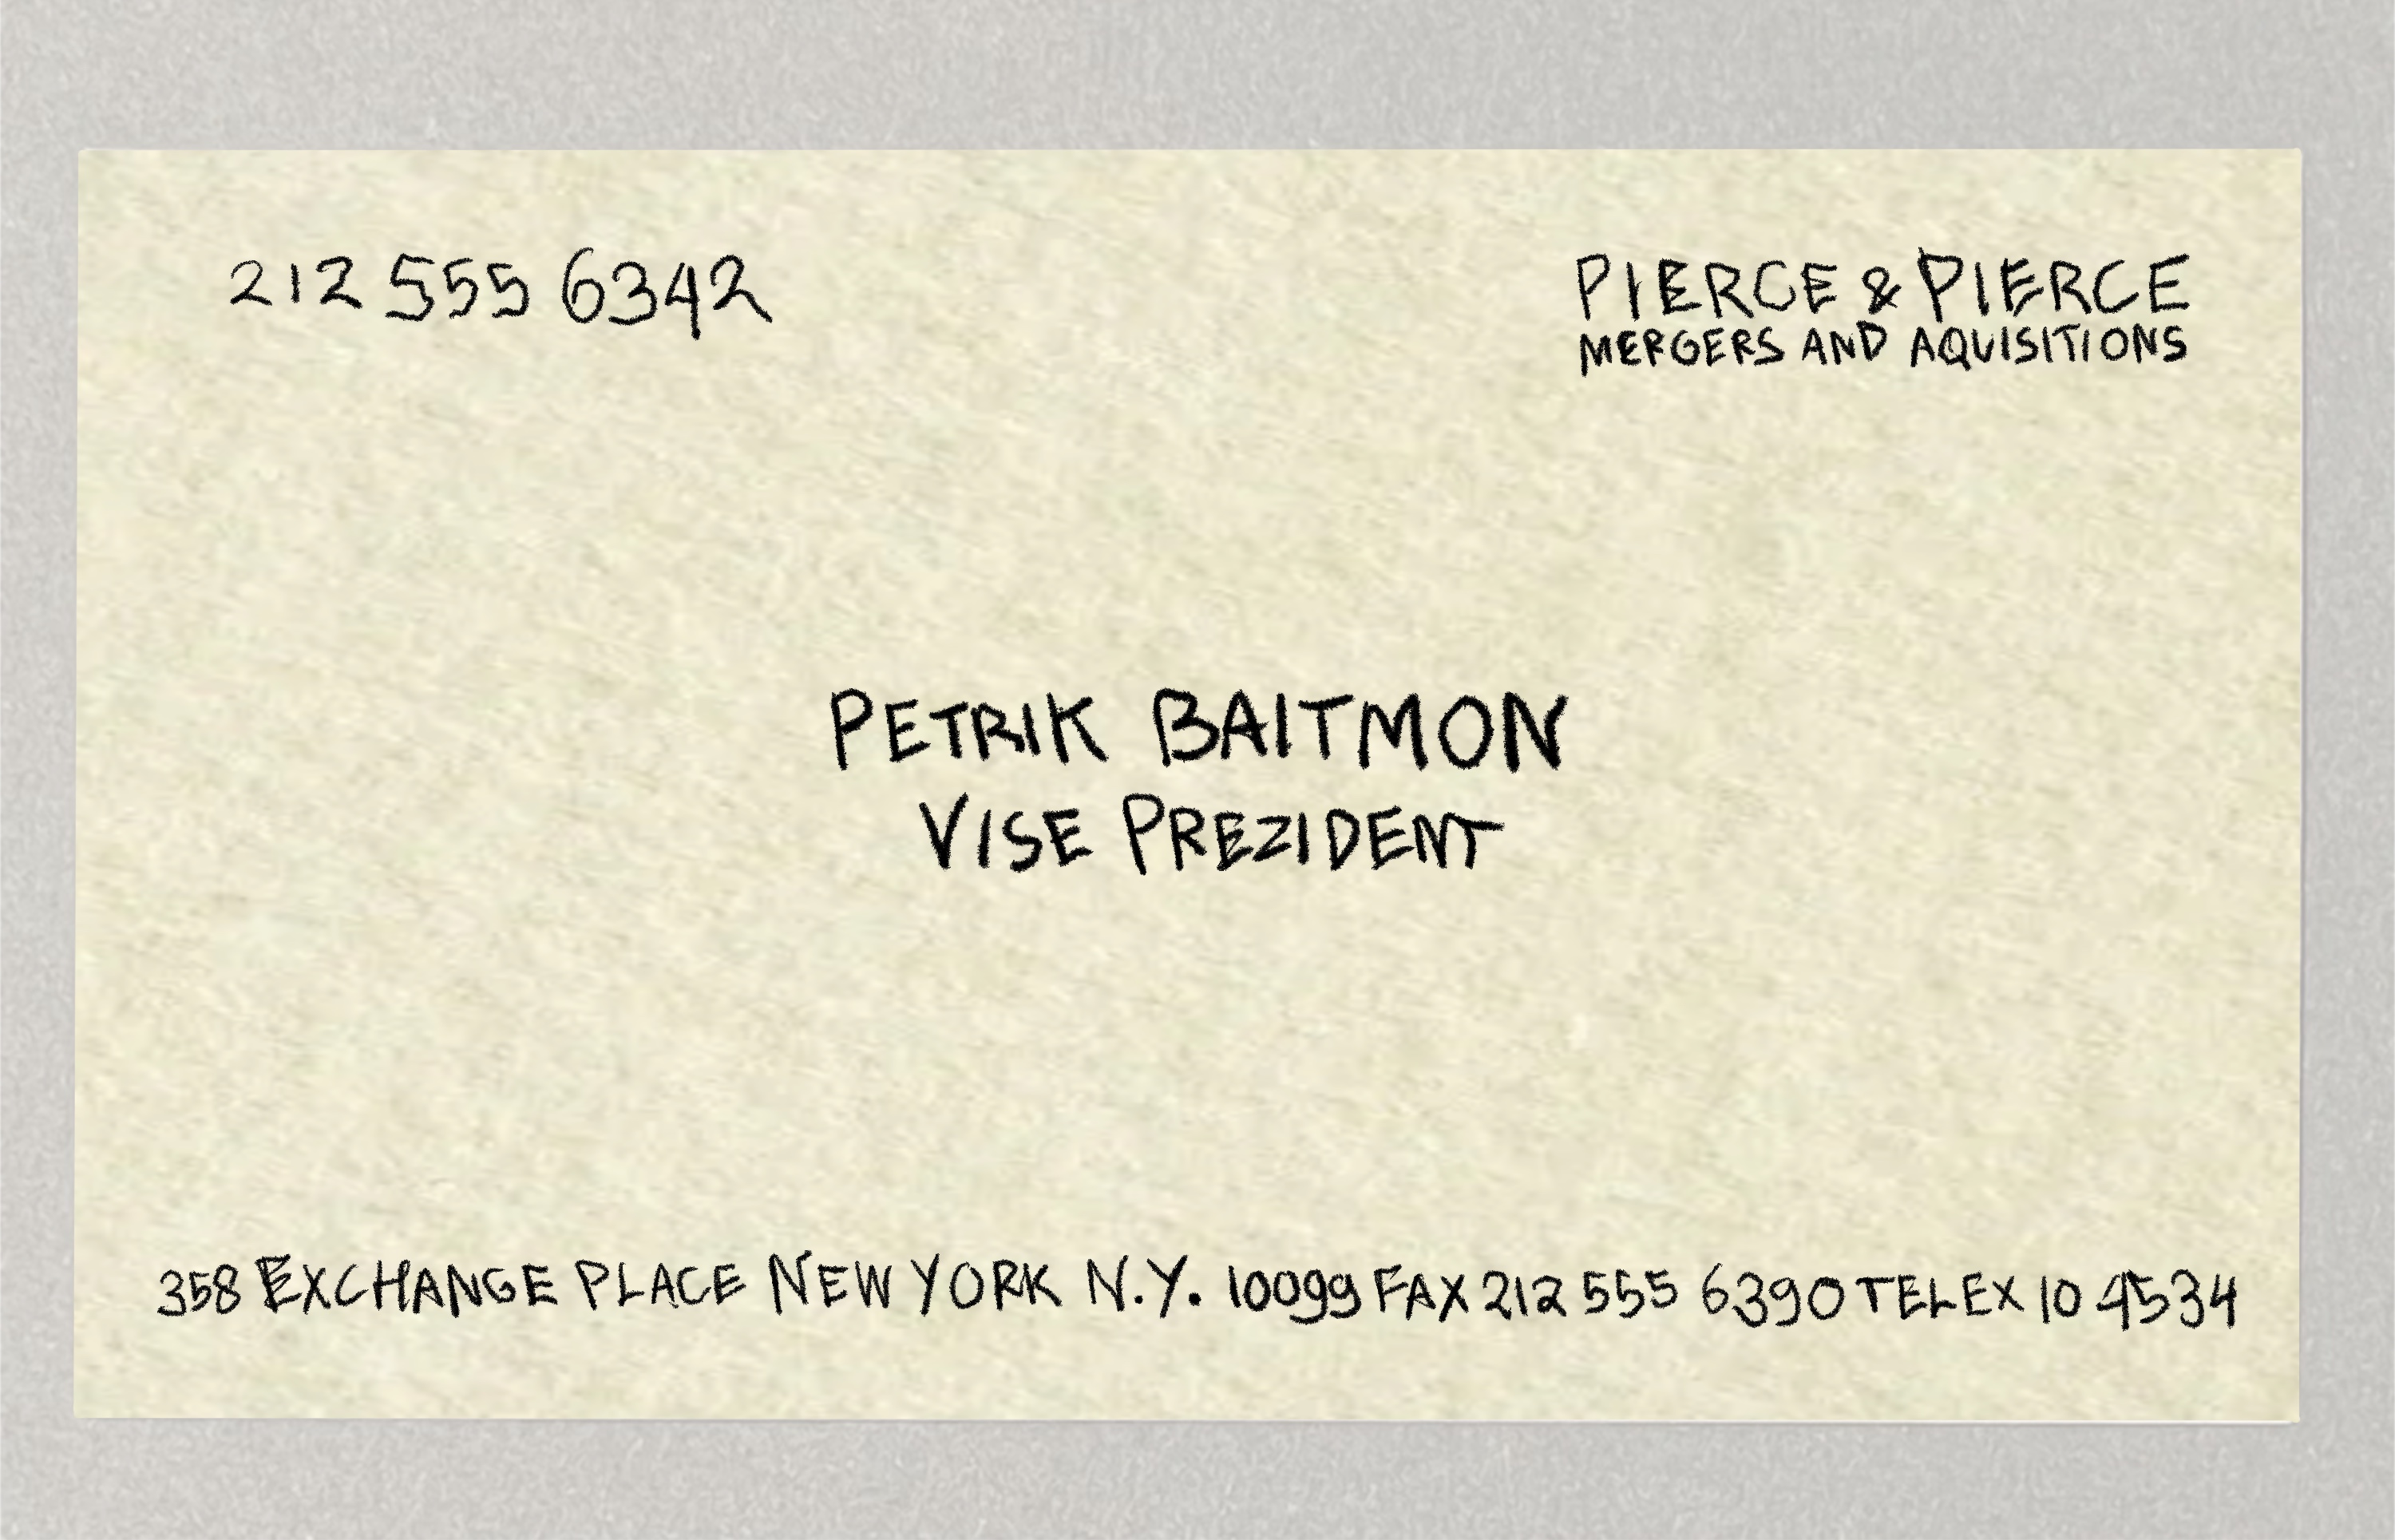 212 555 6342
PIERCE & PIERCE
MERGERS AND AQUISITIONS
PETRIK BAITMON
VISE PREZIDENT
358 EXCHANGE PLACE NEW YORK N.Y. 10099 FAX 212 555 6390 TELEX 10 4534